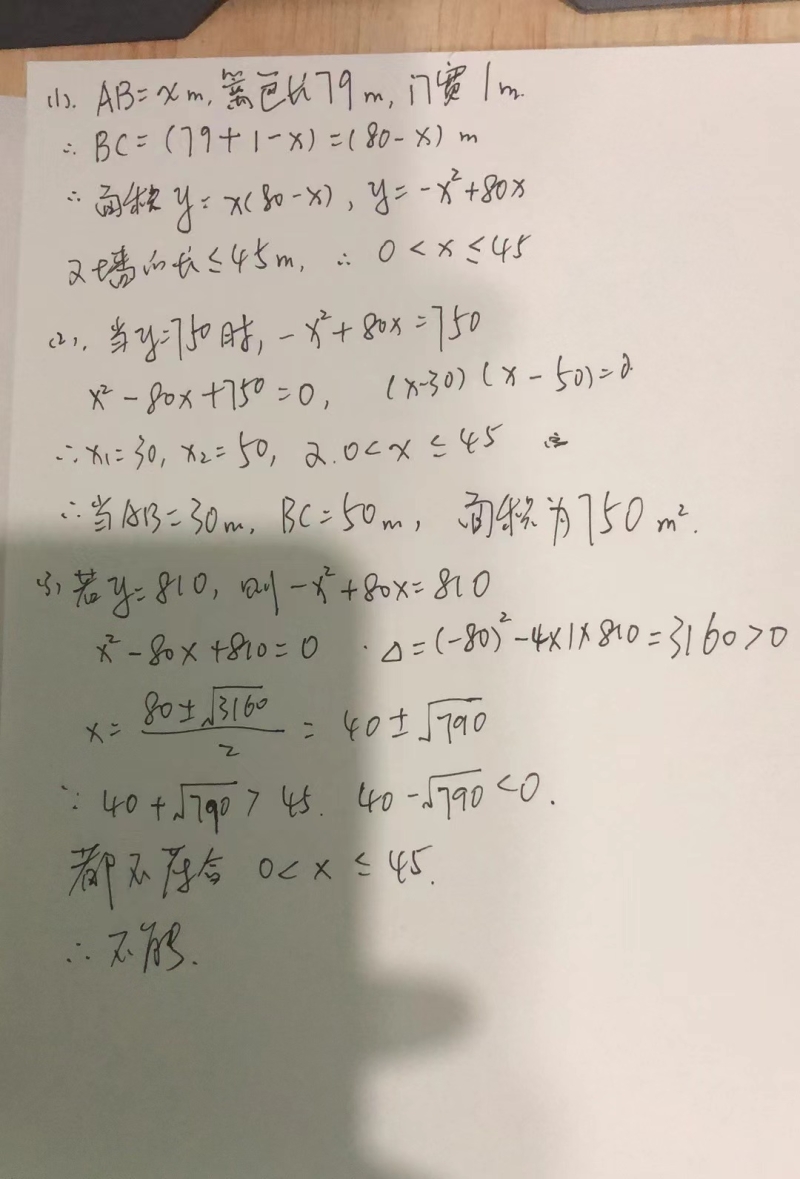 (1). AB=xm,篱笆长79m,门宽1m.
∴BC=(79+1-x)=(80-x)m
∴面积y=x(80-x),y=-x²+80x
又墙的长≤45m,∴0<x≤45
(2).当y=750时,-x²+80x=750
x²-80x+750=0,(x-30)(x-50)=0
∴x₁=30,x₂=50,又0<x≤45
∴当AB=30m,BC=50m,面积为750m².
(3)若y=810,则-x²+80x=810
x²-80x+810=0 ·Δ=(-80)²-4×1×810=3160>0
x=\frac{80±√3160}{2}=40±√790
∵40+√790>45. 40-√790<0.
都不符合0<x≤45.
∴不能.